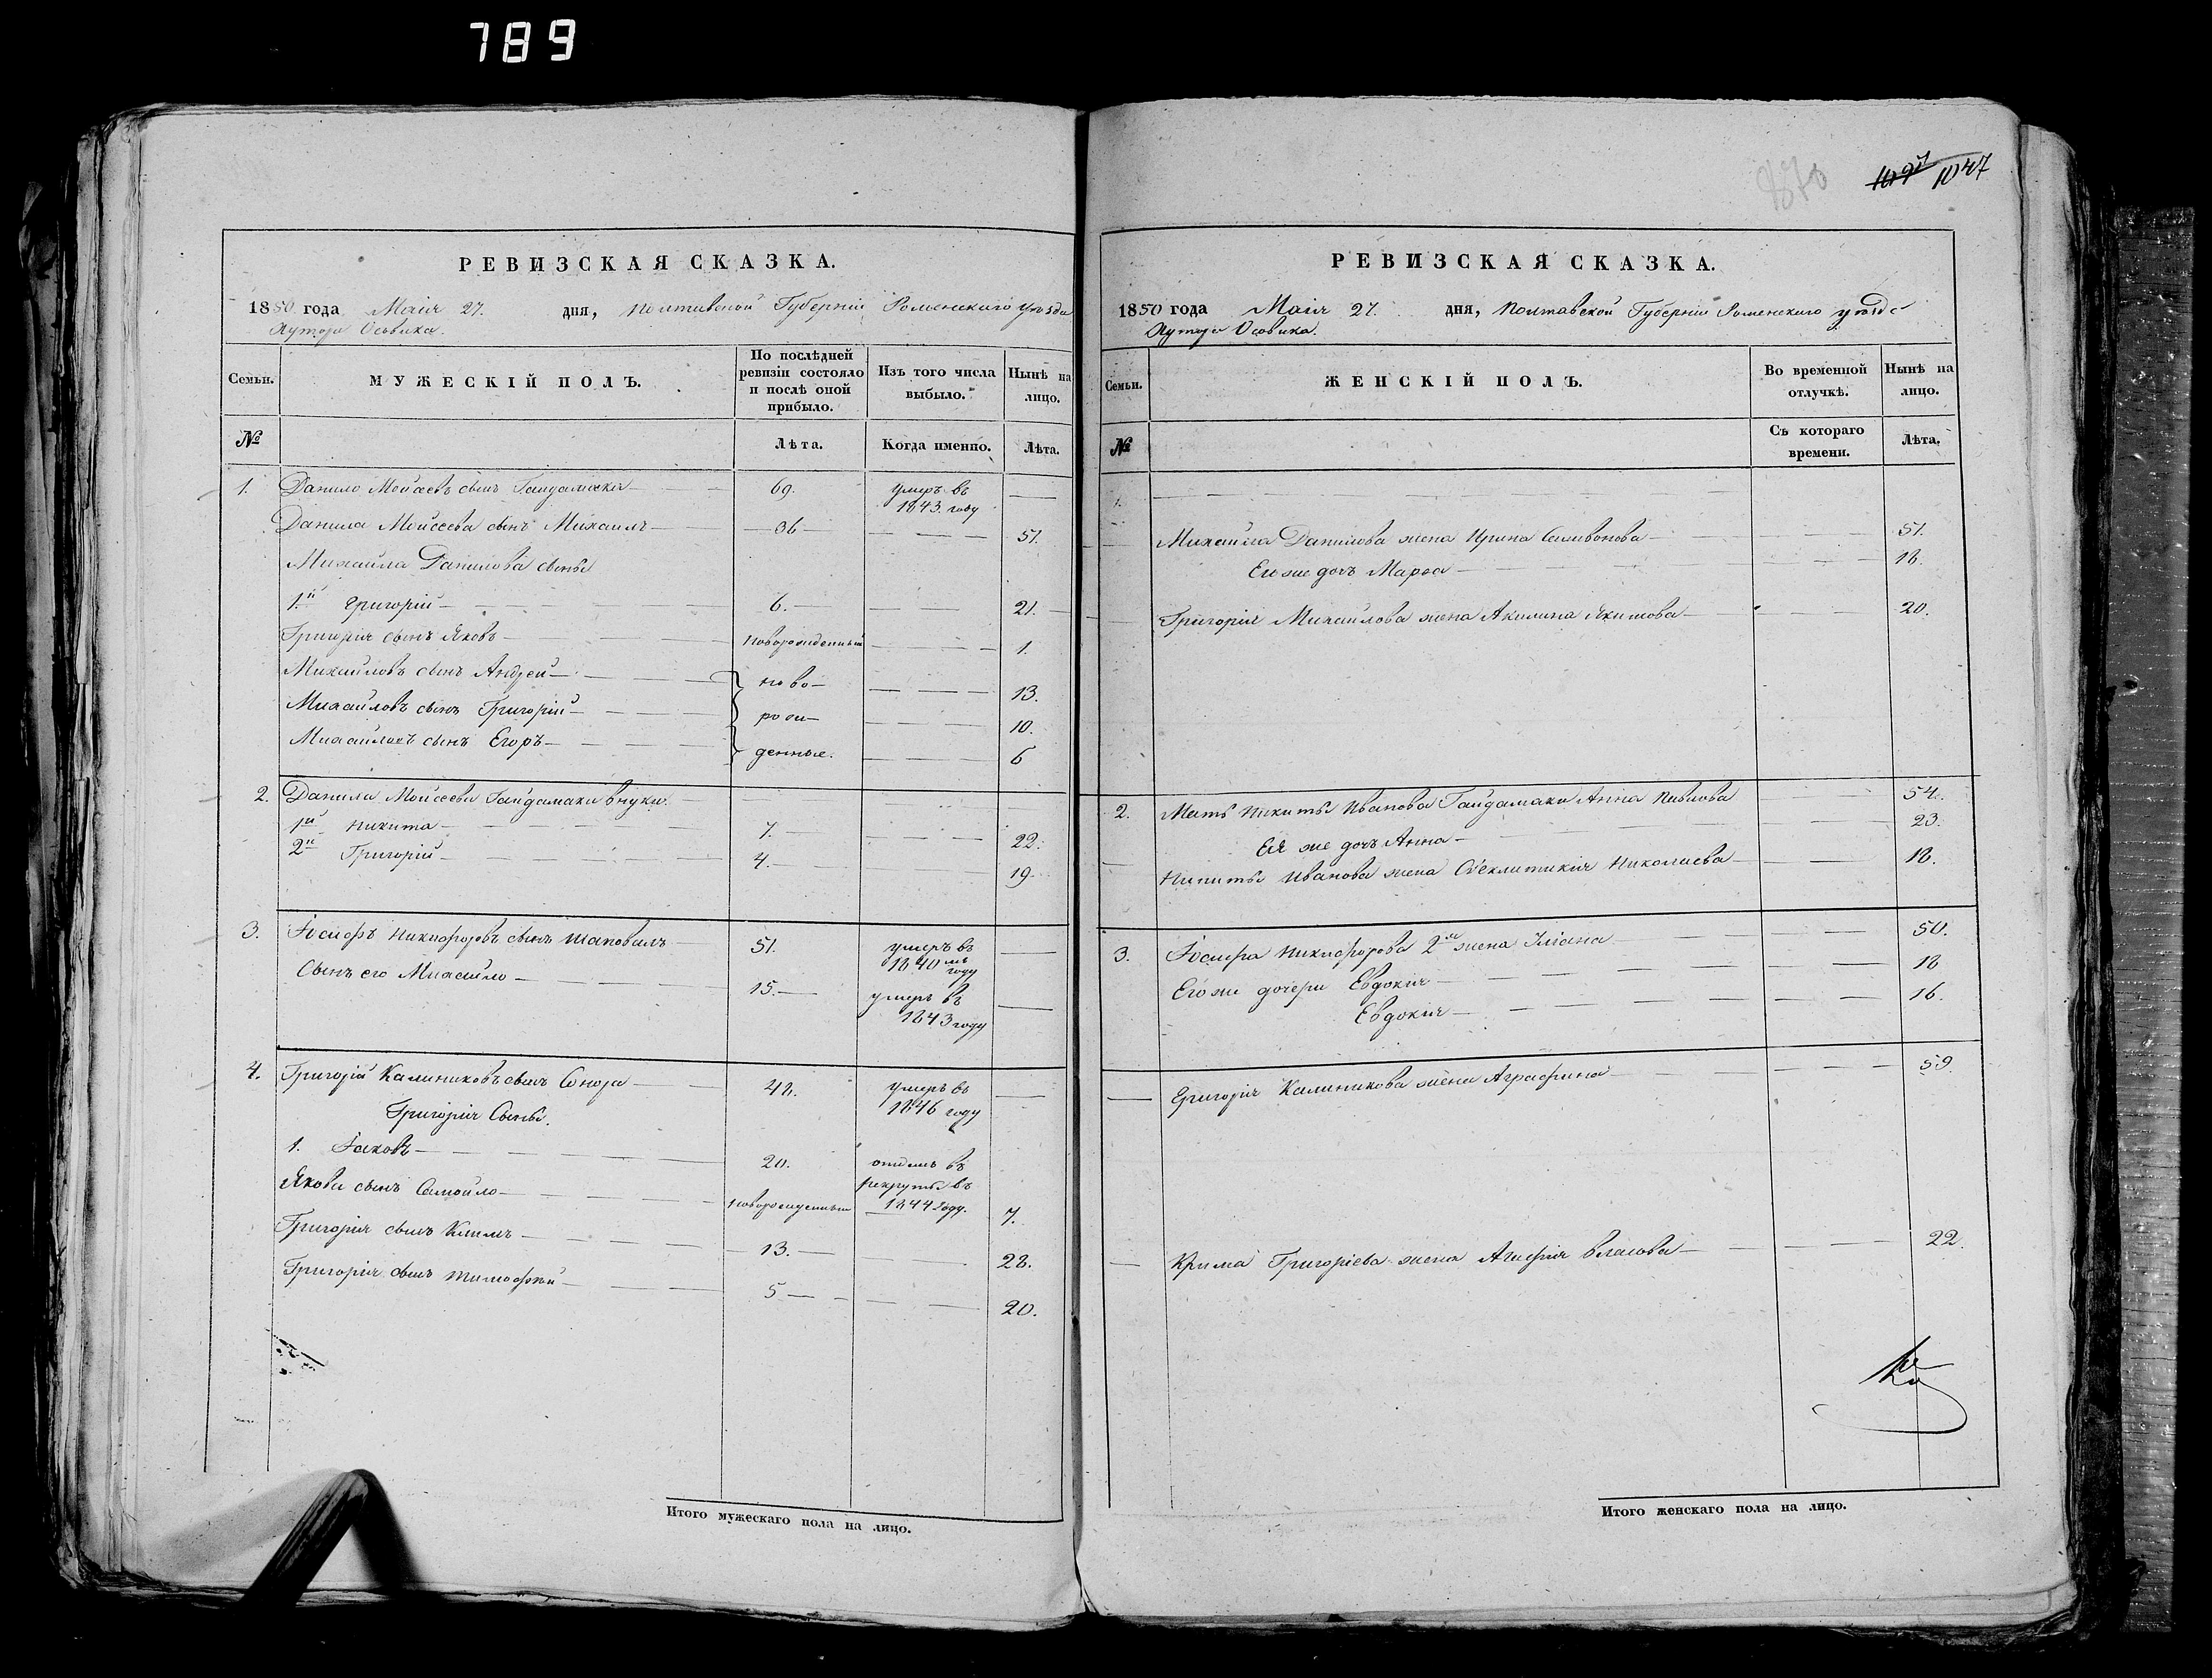 789
РЕВИЗСКАЯ СКАЗКА.
1850 года Маія 27. дня, Полтавской Губерніи Роменского уезда
Хутора Осовика.
Семьи. МУЖЕСКІЙ ПОЛЪ. По послѣдней ревизіи состояло и послѣ оной прибыло. Изъ того числа выбыло. Нынѣ на лицо.
№ Лѣта. Когда именно. Лѣта.
1. Данило Мойсеевъ сынъ Гайдамака 69. умеръ въ 1843. году
Данила Мойсеева сынъ Михаилъ 36 51.
Михайла Данилова сыны
1й Григорій 6. 21.
Григорія сынъ Яковъ новорожденный 1.
Михайловъ сынъ Андрей ново- 13.
Михайловъ сынъ Григорій рож- 10.
Михайловъ сынъ Егоръ денные. 6
2. Данила Мойсеева Гайдамаки внуки.
1й Никита 7. 22.
2й Григорій 4. 19.
3. Іосифъ Никифоровъ сынъ Шаповалъ 51. умеръ въ 1840мъ году
Сынъ его Михайло 15. умеръ въ 1843 году
4. Григорій Калиниковъ сынъ Сокора 48. умеръ въ 1846 году
Григорія Сыны.
1. Іаковъ 20. отданъ въ рекруты въ 1844 году.
Якова сынъ Самойло новорожденный 7.
Григорія сынъ Климъ 13. 28.
Григорія сынъ Тимофей 5 20.
Итого мужескаго пола на лицо.
870 1047
РЕВИЗСКАЯ СКАЗКА.
1850 года Маія 27. дня, Полтавской Губерніи Роменского уезда
Хутора Осовика.
Семьи. ЖЕНСКІЙ ПОЛЪ. Во временной отлучкѣ. Нынѣ на лицо.
№ Съ котораго времени. Лѣта.
1.
Михайла Данилова жена Ирина Селивонова 51.
Его же дочь Марфа 18.
Григорія Михайлова жена Акилина Якимова 20.
2. Мать Никиты Иванова Гайдамаки Анна Павлова 54.
Ея же дочь Анна 23.
Никиты Иванова жена Николаева 18.
3. Іосифа Никифорова 2я жена Уліана 50.
Его же дочери Евдокія 18
Евдокія 16.
Григорія Калиникова жена Аграфина 59.
Клима Григоріева жена Агафія Власова 22.
Итого женскаго пола на лицо.